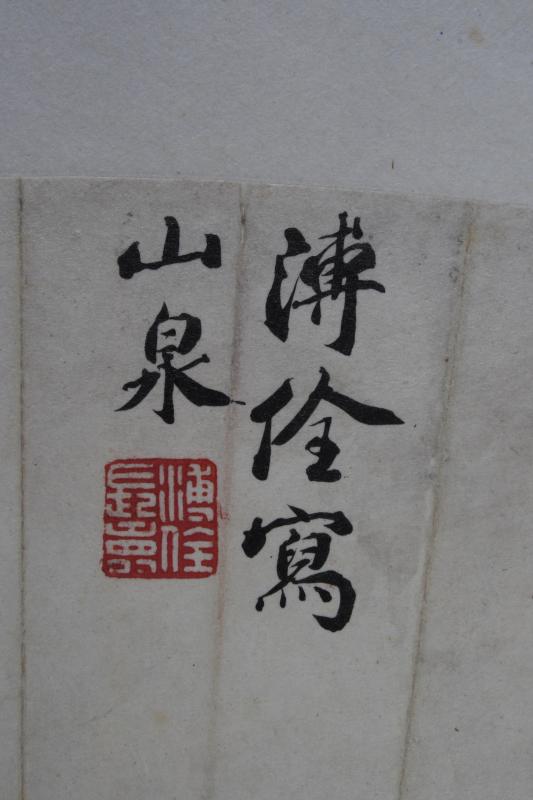 溥佺寫
山泉
溥佺
長